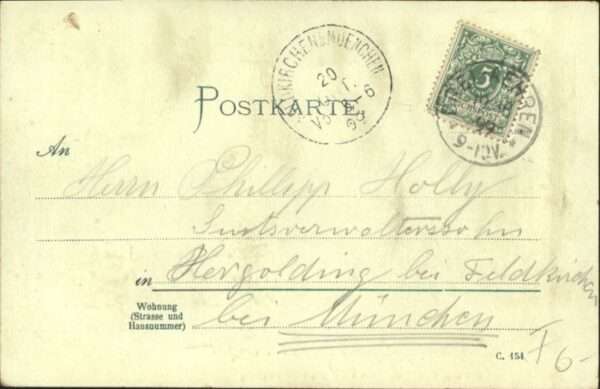 FELDKIRCHEN B. MUENCHEN.
20
5-6
99
POSTKARTE
5
9-10V.
An
Herrn Philipp Holly
Gutsverwalterssohn
in Hergolding bei Feldkirchen
Wohnung
(Strasse und
Hausnummer)
bei München
C. 154.
6-